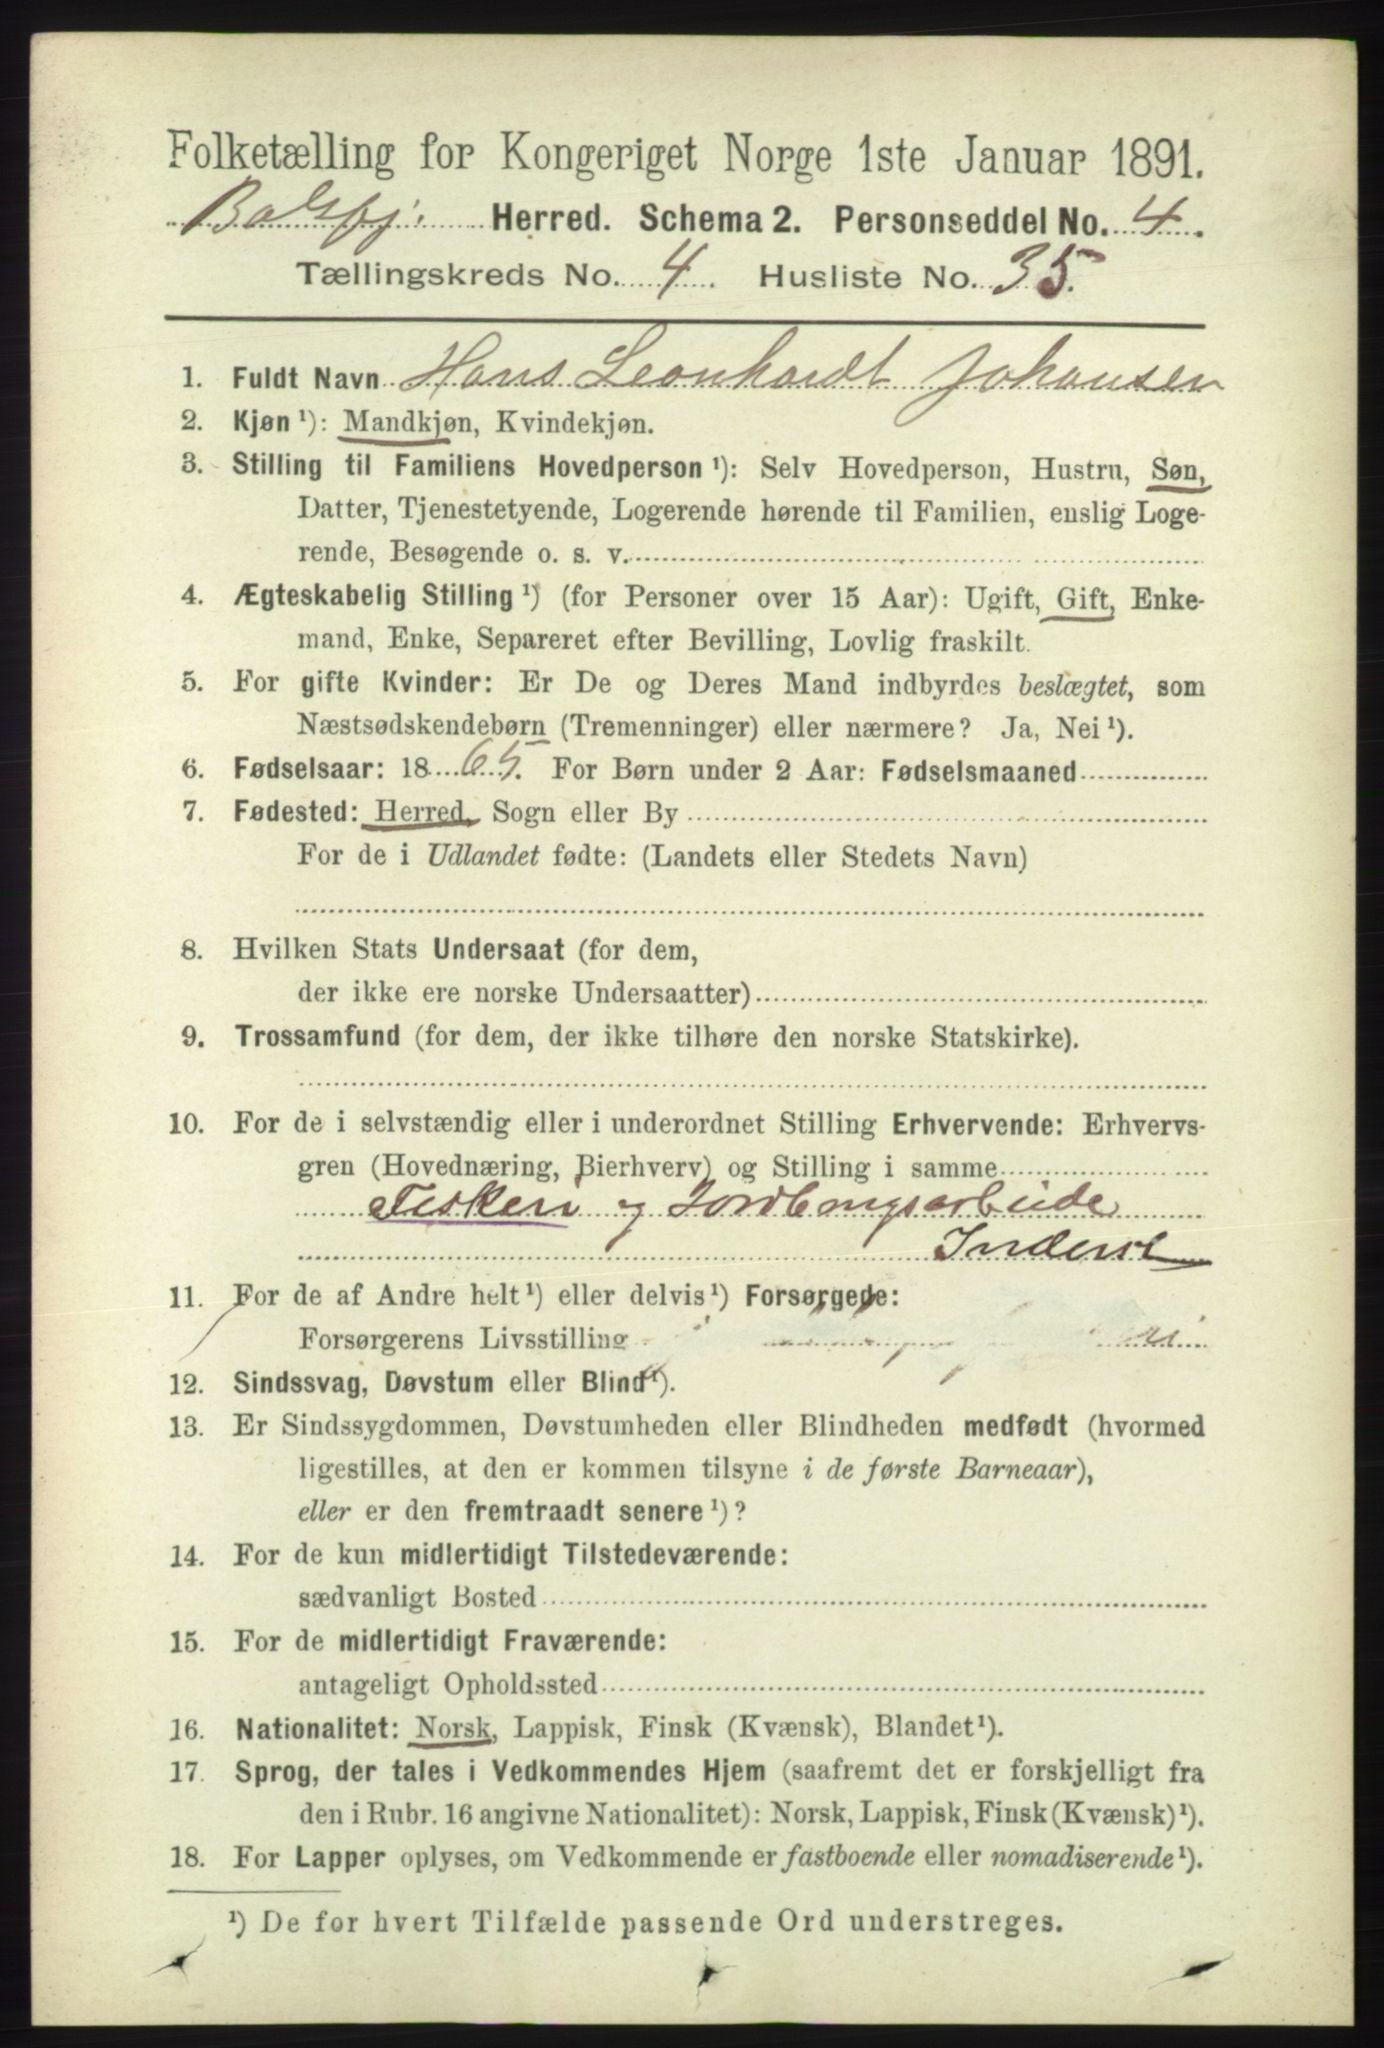 Folketælling for Kongeriget Norge 1ste Januar 1891.
Balsfj. Herred. Schema 2. Personseddel No. 4.
Tællingskreds No. 4. Husliste No. 35.
1. Fuldt Navn Hans Leonhardt Johansen
2. Kjøn ¹): Mandkjøn, Kvindekjøn.
3. Stilling til Familiens Hovedperson ¹): Selv Hovedperson, Hustru, Søn,
Datter, Tjenestetyende, Logerende hørende til Familien, enslig Loge-
rende, Besøgende o. s. v.
4. Ægteskabelig Stilling ¹) (for Personer over 15 Aar): Ugift, Gift, Enke-
mand, Enke, Separeret efter Bevilling, Lovlig fraskilt.
5. For gifte Kvinder: Er De og Deres Mand indbyrdes beslægtet, som
Næstsødskendebørn (Tremenninger) eller nærmere? Ja, Nei ¹).
6. Fødselsaar: 1865. For Børn under 2 Aar: Fødselsmaaned
7. Fødested: Herred, Sogn eller By
For de i Udlandet fødte: (Landets eller Stedets Navn)
8. Hvilken Stats Undersaat (for dem,
der ikke ere norske Undersaatter)
9. Trossamfund (for dem, der ikke tilhøre den norske Statskirke).
10. For de i selvstændig eller i underordnet Stilling Erhvervende: Erhvervs-
gren (Hovednæring, Bierhverv) og Stilling i samme
Fiskeri og Jordbrugsarbeide
Inderst
11. For de af Andre helt ¹) eller delvis ¹) Forsørgede:
Forsørgerens Livsstilling
12. Sindssvag, Døvstum eller Blind ¹).
13. Er Sindssygdommen, Døvstumheden eller Blindheden medfødt (hvormed
ligestilles, at den er kommen tilsyne i de første Barneaar),
eller er den fremtraadt senere ¹)?
14. For de kun midlertidigt Tilstedeværende:
sædvanligt Bosted
15. For de midlertidigt Fraværende:
antageligt Opholdssted
16. Nationalitet: Norsk, Lappisk, Finsk (Kvænsk), Blandet ¹).
17. Sprog, der tales i Vedkommendes Hjem (saafremt det er forskjelligt fra
den i Rubr. 16 angivne Nationalitet): Norsk, Lappisk, Finsk (Kvænsk) ¹).
18. For Lapper oplyses, om Vedkommende er fastboende eller nomadiserende ¹).
¹) De for hvert Tilfælde passende Ord understreges.